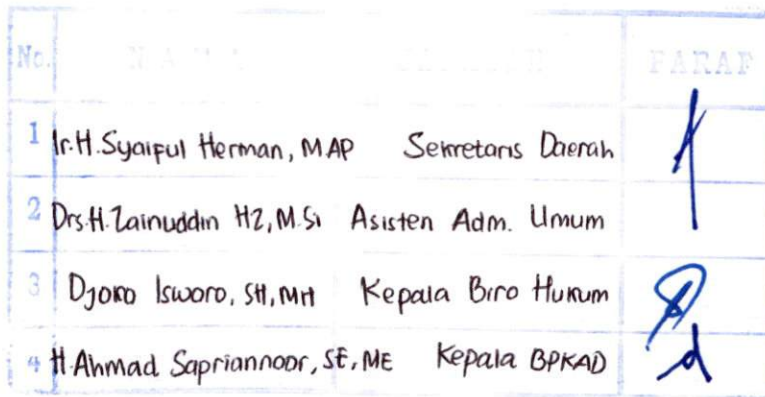 No. NAMA JABATAN PARAF
1 Ir.H.Syaiful Herman, MAP Sekretaris Daerah
2 Drs.H.Zainuddin HZ, M.Si Asisten Adm. Umum
3 Djoko Isworo, SH, MH Kepala Biro Hukum
4 H.Ahmad Sapriannoor, SE, ME Kepala BPKAD